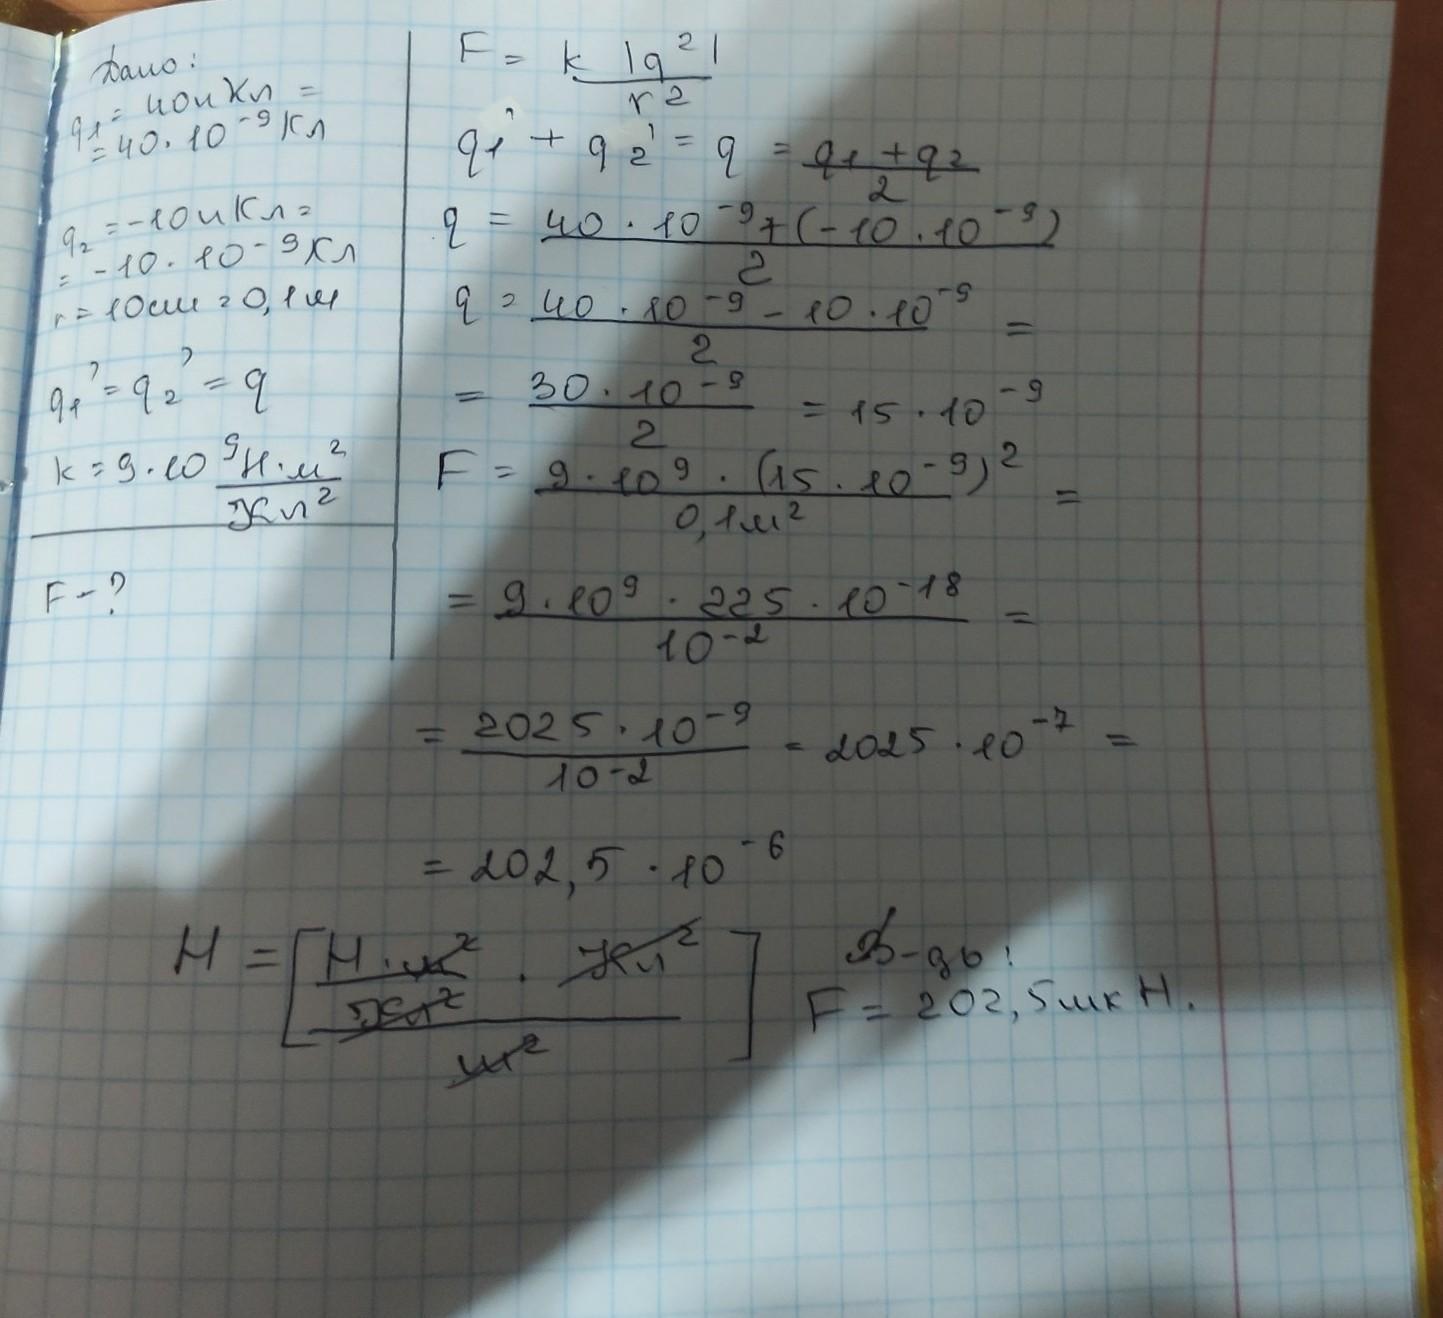 Дано:
q₁ = 40нКл =
= 40·10⁻⁹Кл
q₂ = -10нКл =
= -10·10⁻⁹Кл
r = 10см = 0,1м
q₁' = q₂' = q
k = 9·10⁹ Н·м²/Кл²
F-?
F = k |q²| / r²
q₁' + q₂' = q = (q₁ + q₂) / 2
q = 40·10⁻⁹ + (-10·10⁻⁹) / 2
q = 40·10⁻⁹ - 10·10⁻⁹ / 2 =
= 30·10⁻⁹ / 2 = 15·10⁻⁹
F = 9·10⁹·(15·10⁻⁹)² / 0,1м² =
= 9·10⁹·225·10⁻¹⁸ / 10⁻² =
= 2025·10⁻⁹ / 10⁻² = 2025·10⁻⁷ =
= 202,5·10⁻⁶
Н = [Н·м²/Кл² · Кл² / м²]
В-дь:
F = 202,5мкН.